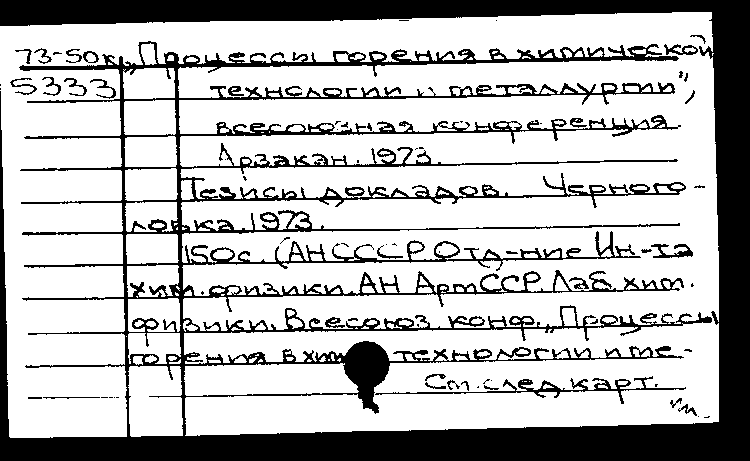 73-50к „Процессы горения в химической
5333 технологии и металлургии",
всесоюзная конференция
Арзакан. 1973.
Тезисы докладов. Черного-
ловка. 1973.
150с. (АН СССР Отд-ние Ин-та
хим. физики. АН АрмССР. Лаб. хим.
физики. Всесоюз. конф. „Процессы
горения в хим технологии и ме-
См. след. карт.